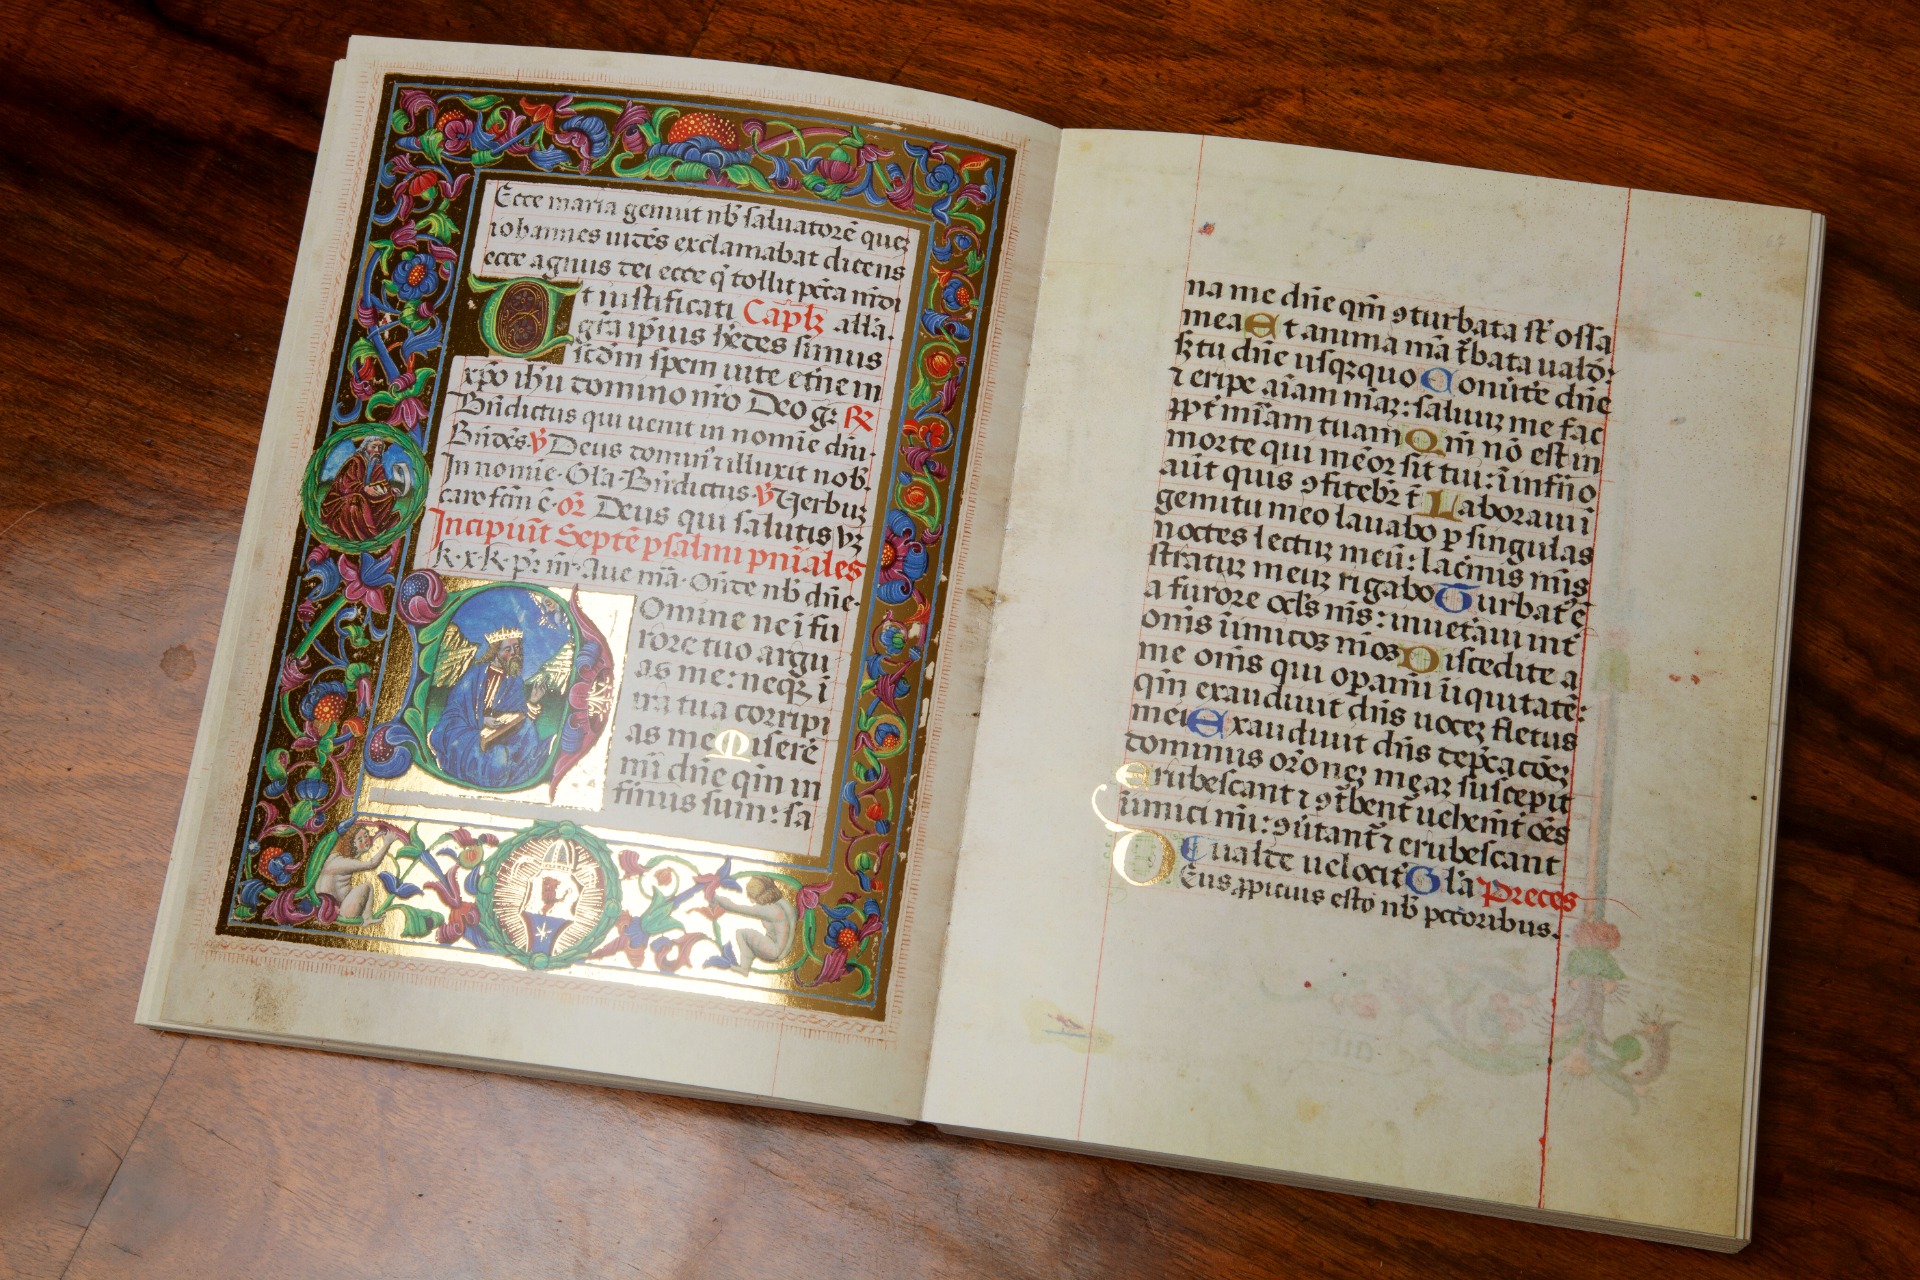 Ecce maria genuit nb̄ saluatorē quez
iohannes uidēs exclamabat dicens
ecce agnus dei ecce q̄ tollit pc̄ta mūdi
Ut iustificati Capl̄z alla.
gr̄a ip̄ius h̄edes simus
scd̄m spem uite et̄ne in
xp̄o ih̄u domino nr̄o Deo gr̄ R̄
Bn̄dictus qui uenit in nomīe dn̄i.
Bn̄des. ꝟ Deus domin⁹ ⁊ illuxit nob̄.
In nomīe. Gl̄a. Bn̄dictus. ꝟ Verbuz
caro fc̄m ē. or̄ Deus qui salutis vz
Incipiūt Septē psalmi pn̄iales
k. x. k. pr̄ nr̄. Aue mā. On̄de nb̄ dn̄e.
Domine ne ī fu
rore tuo argu
as me: neqz ī
ira tua corripi
as me Miserē
mī dn̄e qm̄ in
firmus sum: sa
na me dn̄e qm̄ ꝯturbata st̄ ossa
mea Et anima mā t̄bata ualð:
sz tu dn̄e usqzquo Conūte dn̄e
⁊ eripe aīam maz: saluuz me fac
ꝓpt̄ mīam tuam Qm̄ nō est in
morte qui mēor sit tui: ī infn̄o
aūt quis ꝯfitebr̄ t̄ Laboraui ī
gemitu meo lauabo ꝑ singulas
noctes lectuz meū: lac̄mis mīs
stratuz meuz rigabo Turbat⁹ ē
a furore ocl̄s mīs: inuetaui int̄
om̄s inimicoz mioz Discedite a
me om̄s qui oꝑami īiquitatē:
qm̄ exaudiuit dn̄s uocez fletus
mei Exaudiuit dn̄s dep̄cacoēz
dominus orōnez meaz suscepit
Erubescant ⁊ ꝯt̄bent̄ uehemt̄ oēs
inimici mī: ꝯūtant̄ ⁊ erubescant
Uualde uelocit̄ Gl̄a Preces
Deus ꝓpicius esto nb̄ pctoribus.